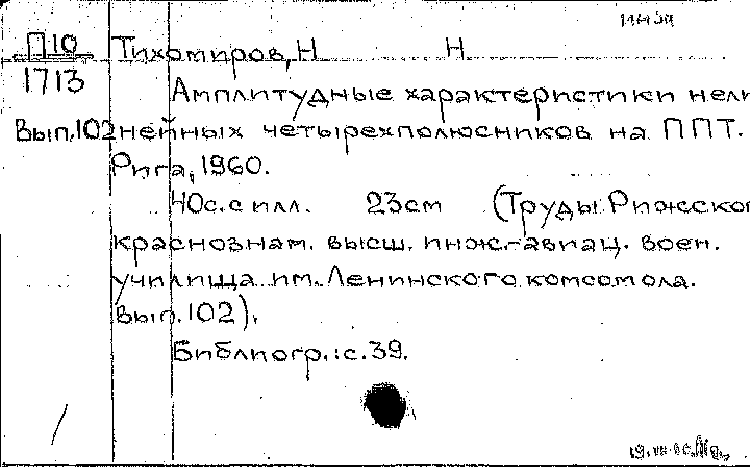 П10 Тихомиров, Н Н
1713
Амплитудные характеристики нели
Вып.102 нейных четырехполюсников на ППТ.
Рига, 1960.
40с. с илл. 23см (Труды Рижского
краснознам. высш. инж.-авиац. воен.
училища им. Ленинского комсомола.
Вып. 102).
Библиогр.: с. 39.